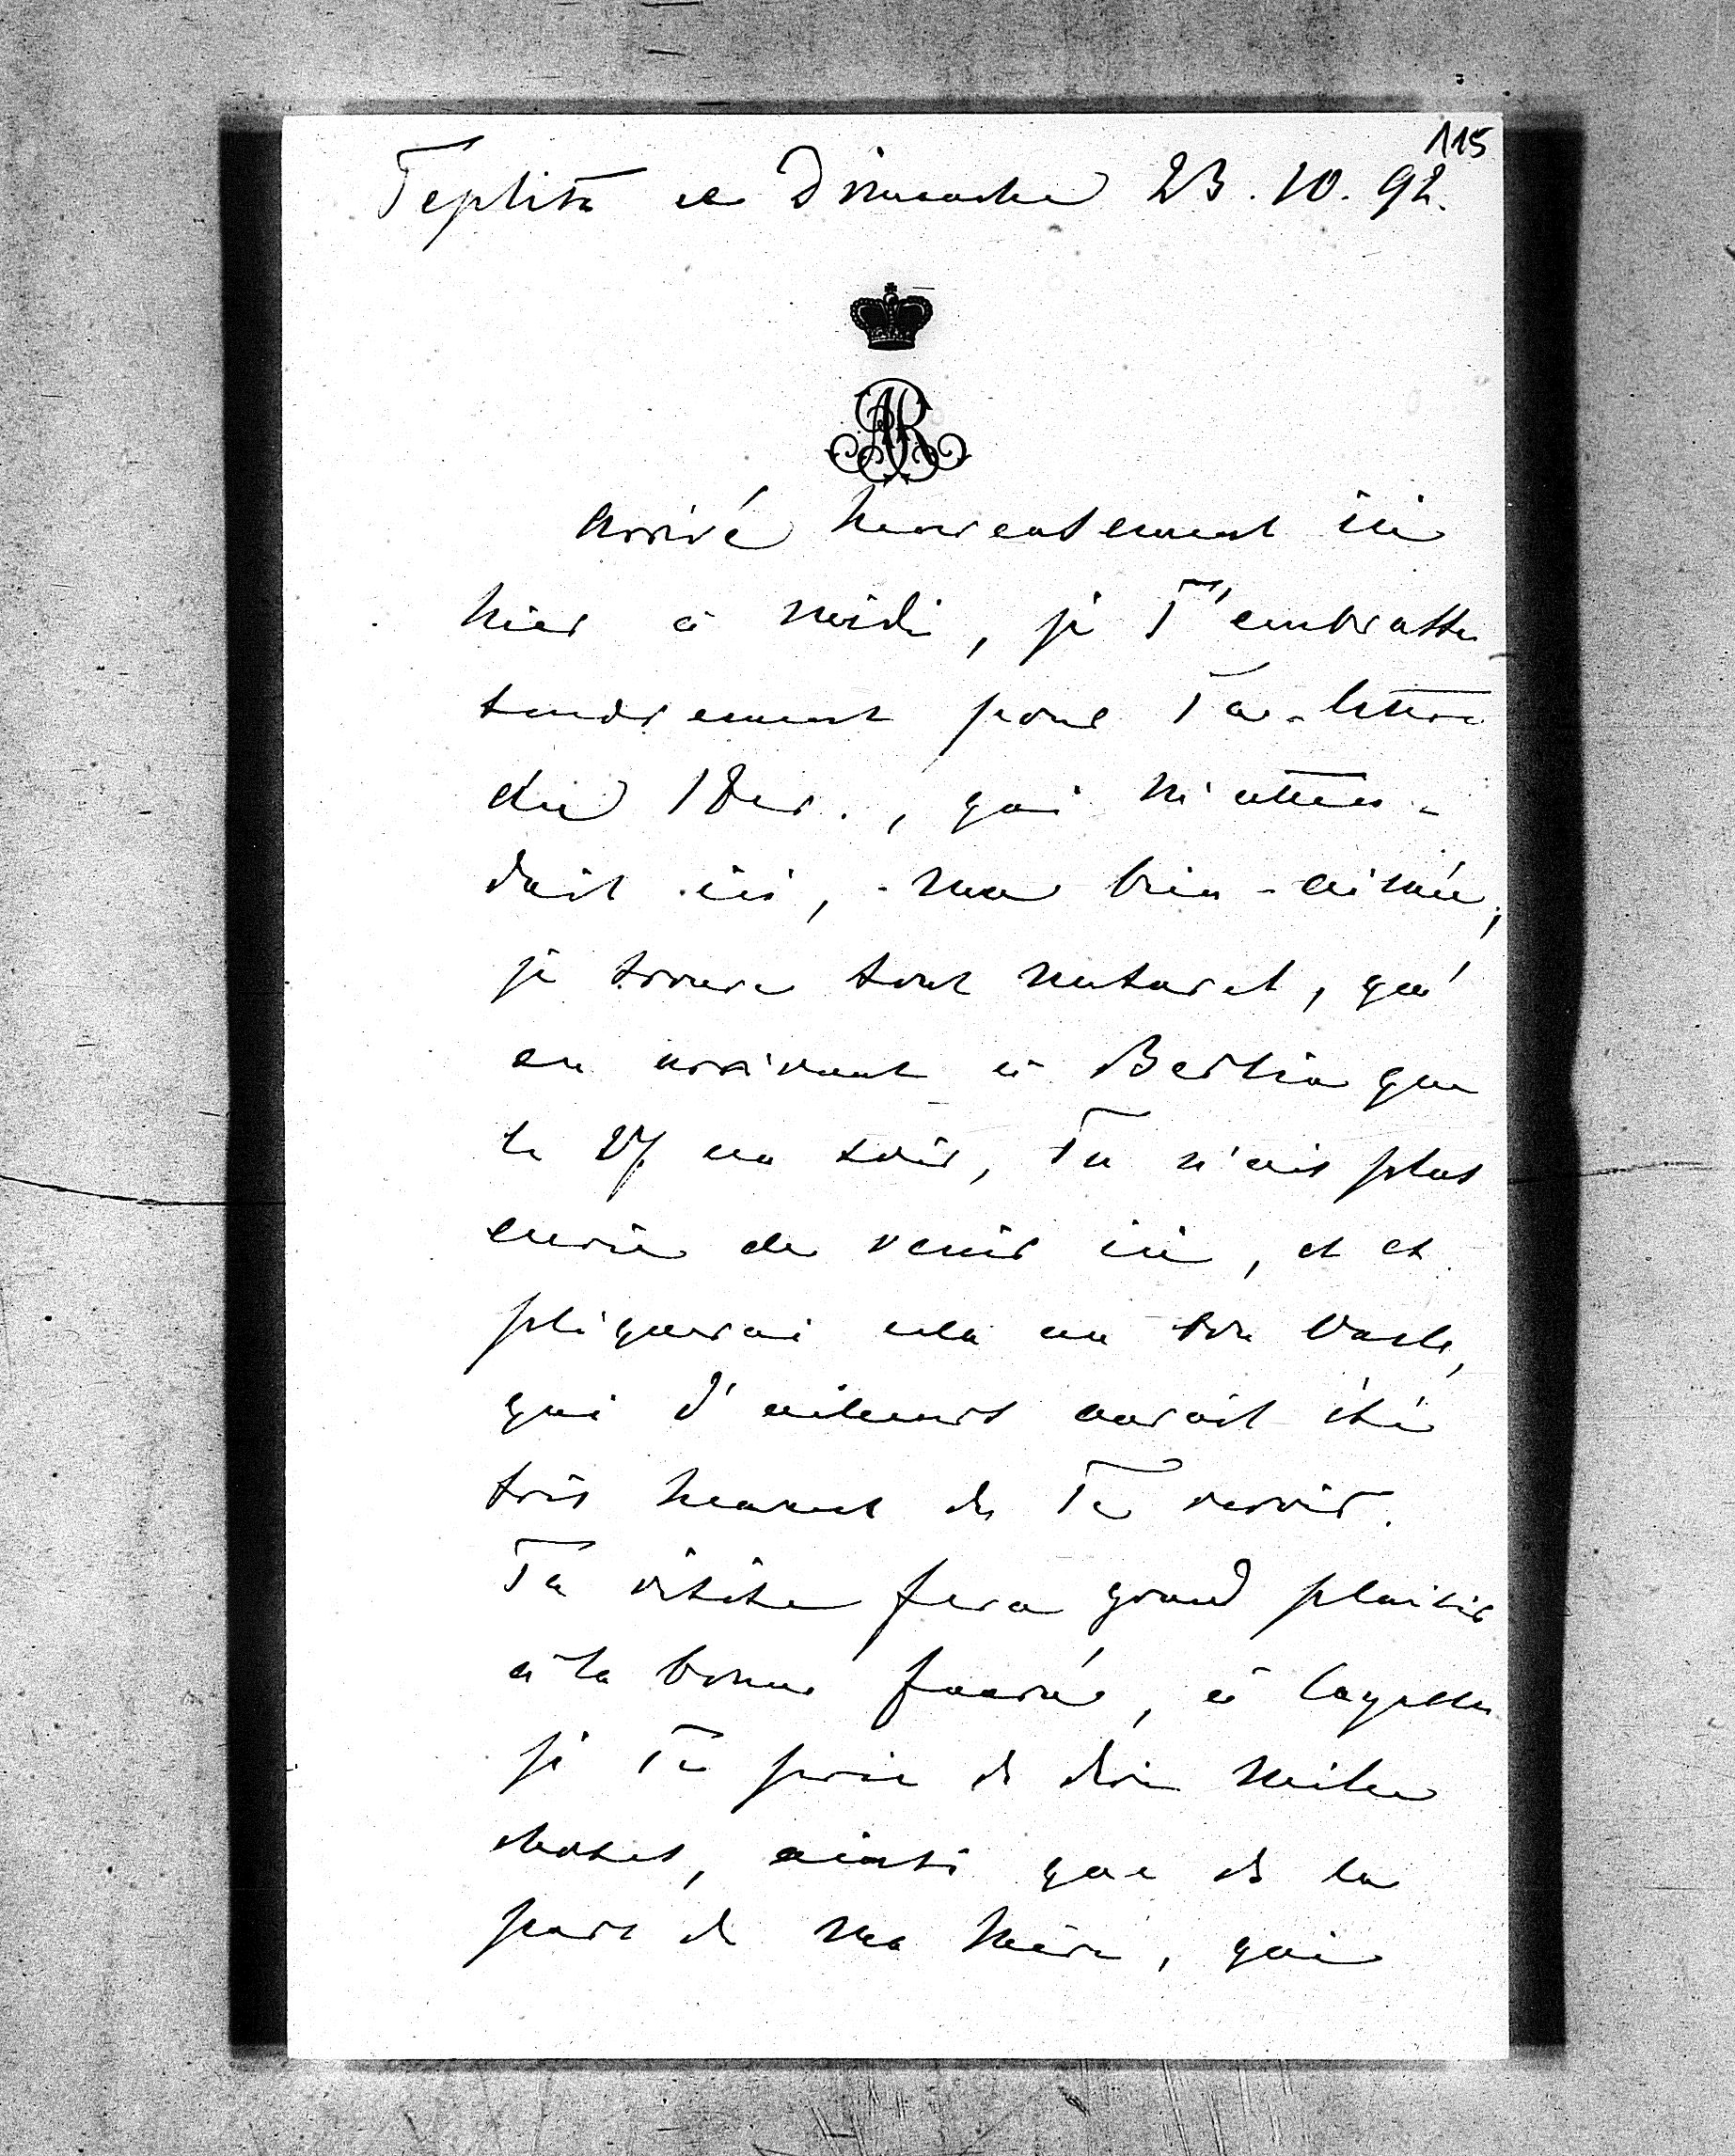 115
Teplitz ce Dimanche 23. 10. 92.
AR
Arrivé heureusement ici
hier à midi, je T'embrasse
tendrement pour Ta lettre
du 18 cr., qui m'atten-
dait ici, ma bien-aimée,
je trouve tout naturel, qu'
en arrivant à Berlin que
le 27 au soir, Tu n'ais plus
envie de venir ici, et ex
pliquerai cela au bon Vasili,
qui d'ailleurs aurait été
très heureux de Te revoir.
Ta visite fera grand plaisir
à la bonne , à laquelle
je Te prie de dire mille
choses, ainsi que de la
part de ma mère, qui